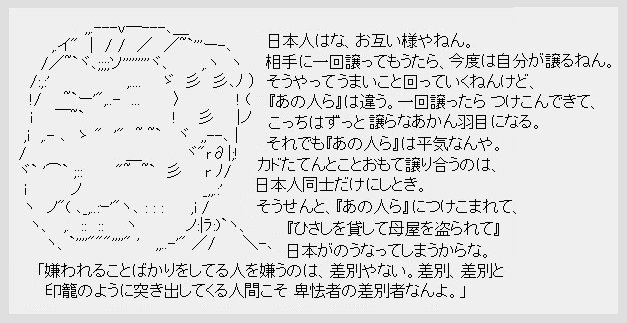 日本人はな、お互い様やねん。
相手に一回譲ってもうたら、今度は自分が譲るねん。
そうやってうまいこと回っていくねんけど、
『あの人ら』は違う。一回譲ったら つけこんできて、
こっちはずっと 譲らなあかん羽目になる。
それでも『あの人ら』は平気なんや。
カドたてんとことおもて譲り合うのは、
日本人同士だけにしとき。
そうせんと、『あの人ら』につけこまれて、
『ひさしを貸して母屋を盗られて』
日本がのうなってしまうからな。
「嫌われることばかりをしてる人を嫌うのは、差別やない。差別、差別と
印籠のように突き出してくる人間こそ 卑怯者の差別者なんよ。」